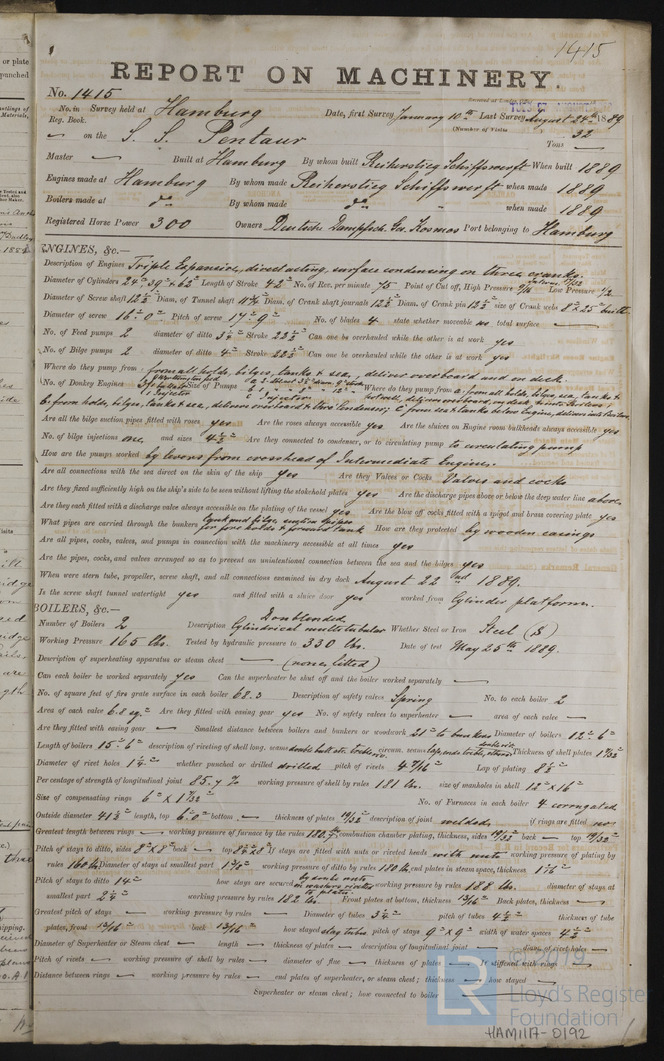 1415
REPORT ON MACHINERY.
No. 1415
No. in Survey held at Hamburg Date, first Survey January 10th Last Survey August 24th 1889
Reg. Book. (Number of Visits 32
on the S. S. Pentaur Tons —
Master — Built at Hamburg By whom built Reiherstieg Schiffswerft When built 1889
Engines made at Hamburg By whom made Reiherstieg Schiffswerft when made 1889
Boilers made at do. By whom made do. when made 1889
Registered Horse Power 300 Owners Deutsche Dampfsch. Ges. Kosmos Port belonging to Hamburg
ENGINES, &c.—
Description of Engines Triple Expansion, direct acting, surface condensing on three cranks.
Diameter of Cylinders 24" 39" & 62" Length of Stroke 42" No. of Rev. per minute 75 Point of Cut off, High Pressure Low Pressure 1/2
Diameter of Screw shaft Diam. of Tunnel shaft Diam. of Crank shaft journals Diam. of Crank pin size of Crank webs built
Diameter of screw 16' 0" Pitch of screw 17' 9" No. of blades 4 state whether moveable no total surface —
No. of Feed pumps 2 diameter of ditto Stroke Can one be overhauled while the other is at work yes
No. of Bilge pumps 2 diameter of ditto 4" Stroke Can one be overhauled while the other is at work yes
Where do they pump from from all holds, bilges, tanks & sea, deliver overboard and on deck.
No. of Donkey Engines Size of Pumps Where do they pump from a, from all holds, bilges, sea, tanks &
b, from holds, bilges, tanks & sea, deliver overboard & thro Condenser; c from sea & tanks below Engine, deliver into
Are all the bilge suction pipes fitted with roses yes Are the roses always accessible yes Are the sluices on Engine room bulkheads always accessible yes
No. of bilge injections one, and sizes Are they connected to condenser, or to circulating pump to circulating pump
How are the pumps worked by levers from crosshead of Intermediate Engine.
Are all connections with the sea direct on the skin of the ship yes Are they Valves or Cocks Valves and cocks
Are they fixed sufficiently high on the ship's side to be seen without lifting the stokehold plates yes Are the discharge pipes above or below the deep water line above
Are they each fitted with a discharge valve always accessible on the plating of the vessel yes Are the blow off cocks fitted with a spigot and brass covering plate yes
What pipes are carried through the bunkers tank and bilge suction pipes for fore holds & foremost tank How are they protected by wooden casings
Are all pipes, cocks, valves, and pumps in connection with the machinery accessible at all times yes
Are the pipes, cocks, and valves arranged so as to prevent an unintentional connection between the sea and the bilges yes
When were stern tube, propeller, screw shaft, and all connections examined in dry dock August 22nd 1889.
Is the screw shaft tunnel watertight yes and fitted with a sluice door yes worked from Cylinder platform.
BOILERS, &c.—
Number of Boilers 2 Description Cylindrical multitubular Whether Steel or Iron Steel (S)
Working Pressure 165 lbs. Tested by hydraulic pressure to 330 lbs. Date of test May 25th 1889.
Description of superheating apparatus or steam chest — (none, fitted)
Can each boiler be worked separately yes Can the superheater be shut off and the boiler worked separately —
No. of square feet of fire grate surface in each boiler 68.3 Description of safety valves Spring No. to each boiler 2
Area of each valve Are they fitted with easing gear yes No. of safety valves to superheater — area of each valve —
Are they fitted with easing gear — Smallest distance between boilers and bunkers or woodwork 21" to bunkers Diameter of boilers 12' 6"
Length of boilers 15' 6" description of riveting of shell long. seams circum. seams Thickness of shell plates
Diameter of rivet holes whether punched or drilled drilled pitch of rivets 4 7/16" Lap of plating
Percentage of strength of longitudinal joint 85.4 % working pressure of shell by rules 181 lbs. size of manholes in shell 12" x 16"
Size of compensating rings No. of Furnaces in each boiler 4 corrugated
Outside diameter length, top 6' 0" bottom — thickness of plates description of joint welded, if rings are fitted no
Greatest length between rings — working pressure of furnace by the rules combustion chamber plating, thickness, sides back — top
Pitch of stays to ditto, sides back — top If stays are fitted with nuts or riveted heads with nuts working pressure of plating by
rules Diameter of stays at smallest part working pressure of ditto by rules 180 lbs, end plates in steam space, thickness
Pitch of stays to ditto 14" how stays are secured by double nuts working pressure by rules 188 lbs. diameter of stays at
smallest part working pressure by rules 182 lbs. Front plates at bottom, thickness 13/16" Back plates, thickness —
Greatest pitch of stays — working pressure by rules — Diameter of tubes pitch of tubes thickness of tube
plates, front 13/16" back 13/16" how stayed stay tubes, pitch of stays 9" x 9" width of water spaces
Diameter of Superheater or Steam chest — length — thickness of plates — description of longitudinal joint — diam. of rivet holes —
Pitch of rivets — working pressure of shell by rules — diameter of flue — thickness of plates If stiffened with rings —
Distance between rings — working pressure by rules — end plates of superheater, or steam chest; thickness how stayed —
Superheater or steam chest; how connected to boiler —
LR
© 2019
Lloyd's Register
Foundation
HAM1117-0192